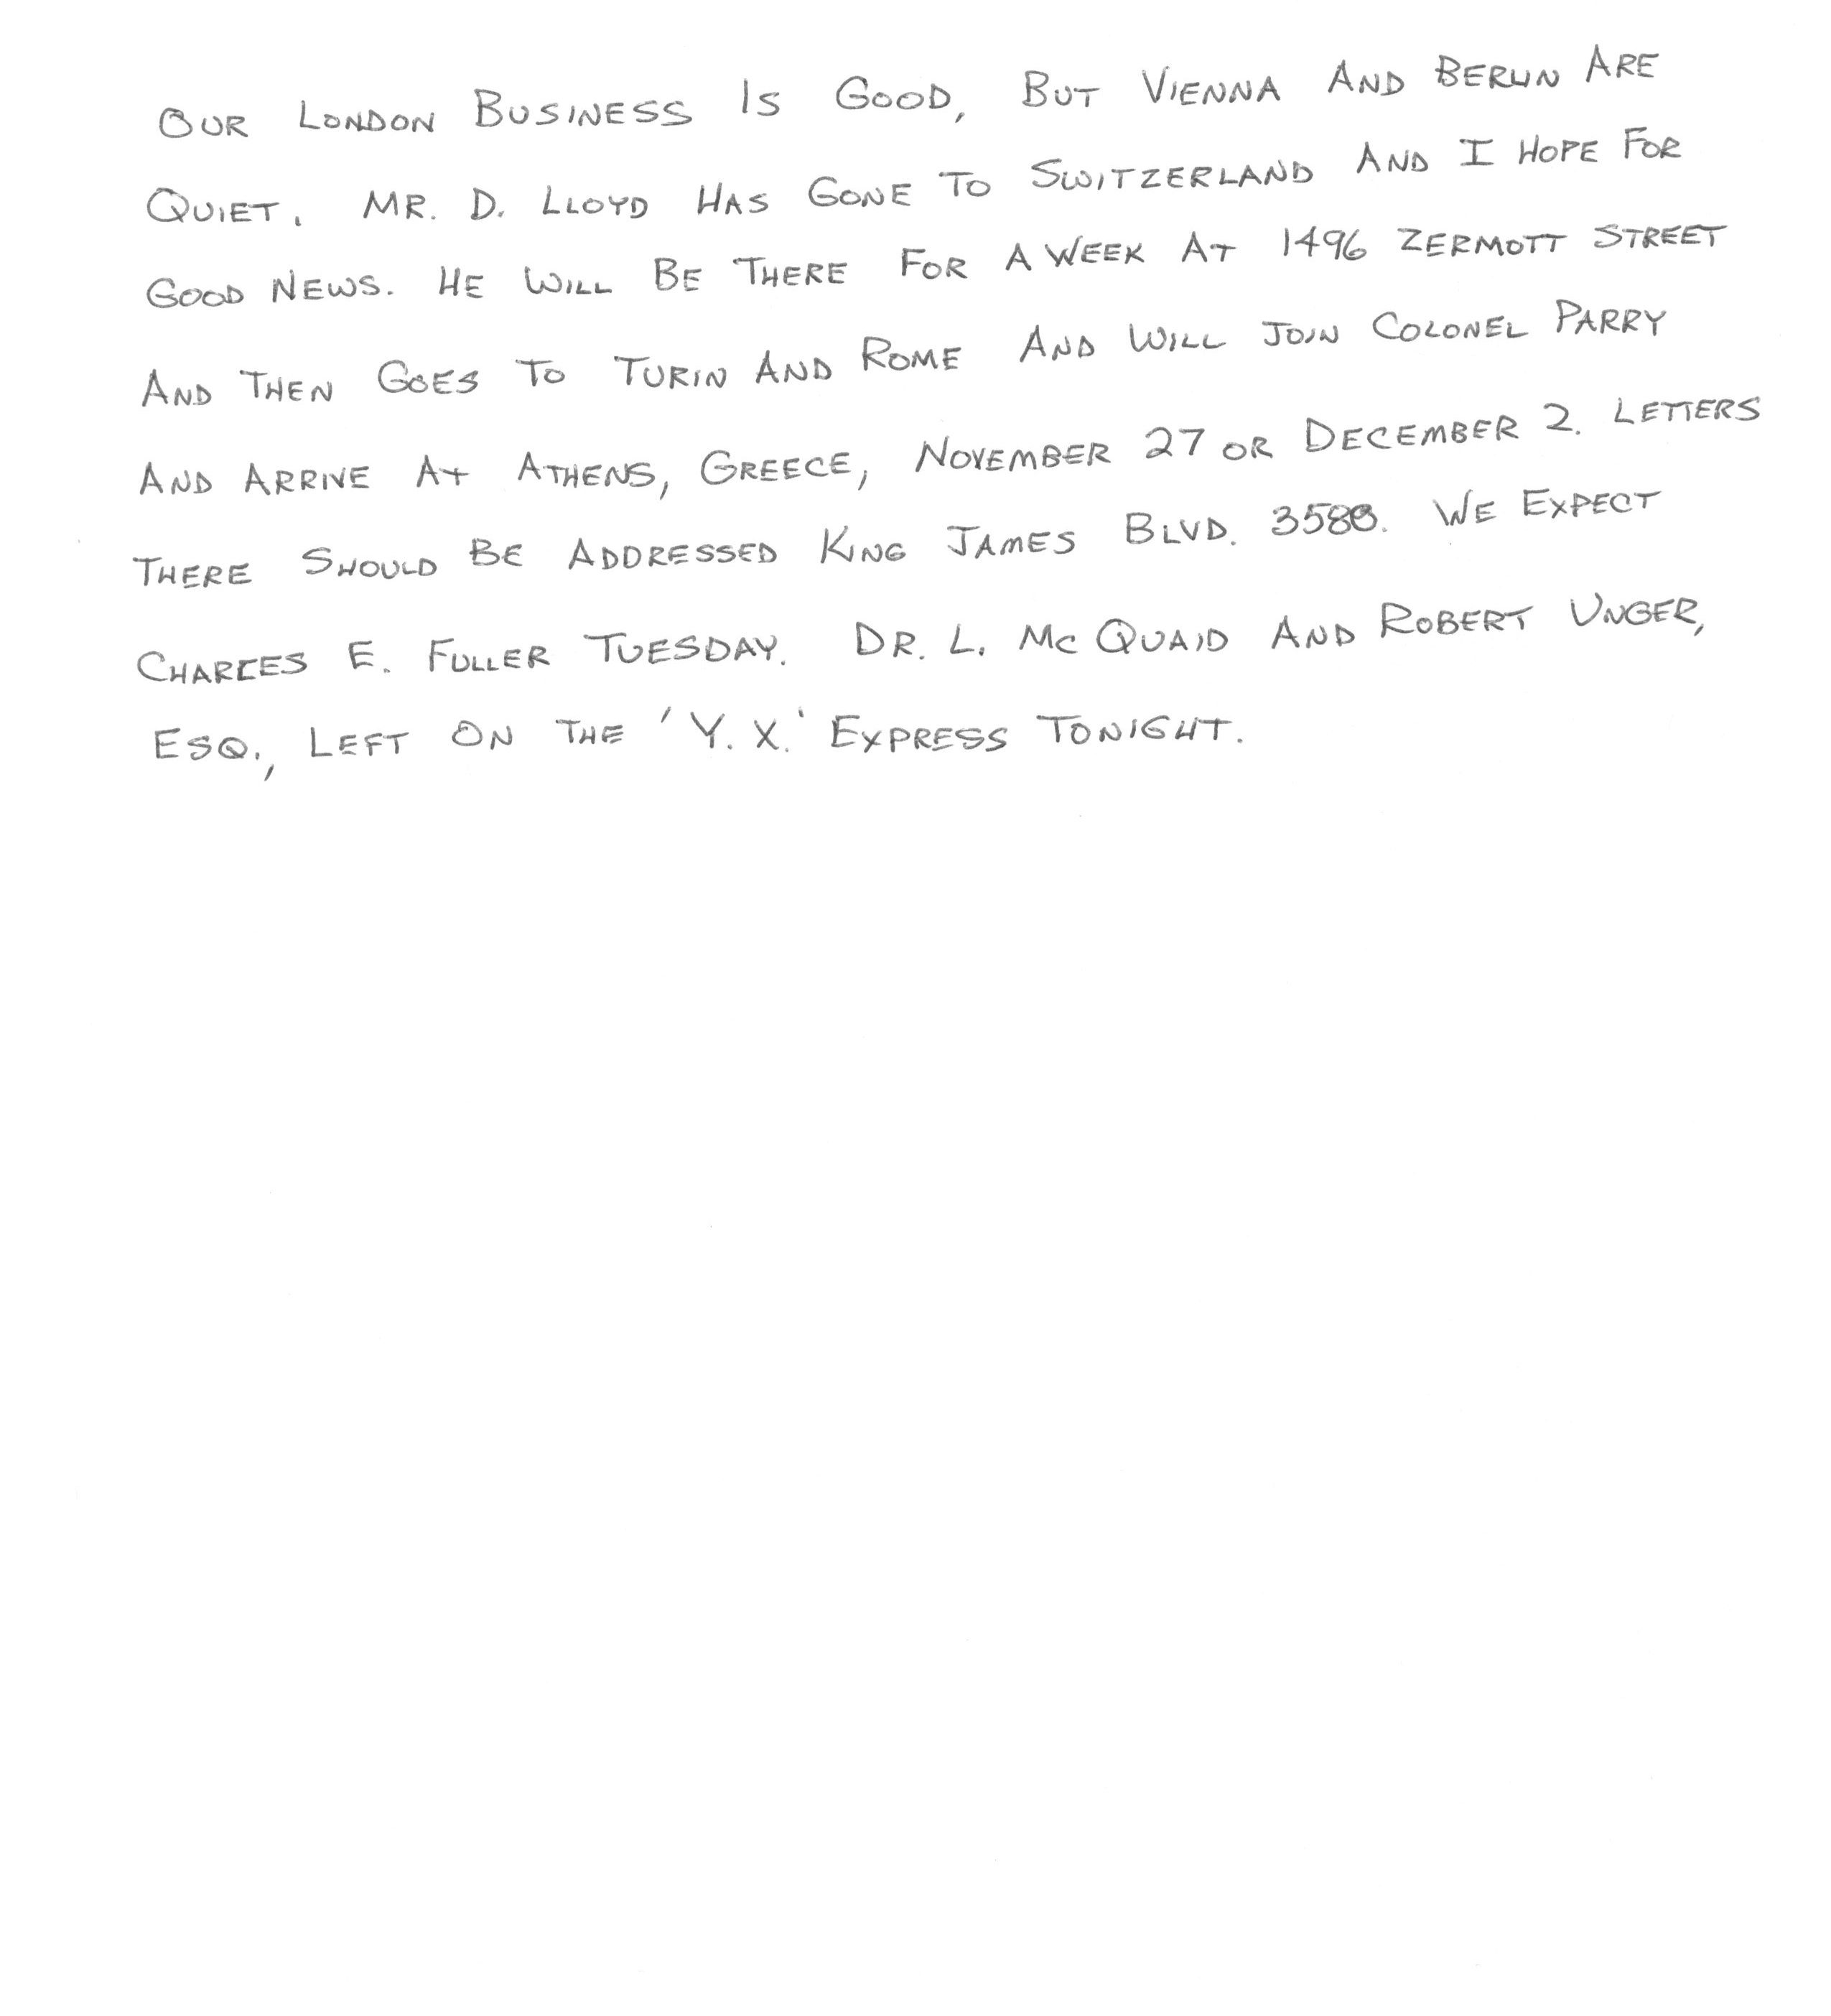 OUR LONDON BUSINESS IS GOOD, BUT VIENNA AND BERLIN ARE
QUIET. MR. D. LLOYD HAS GONE TO SWITZERLAND AND I HOPE FOR
GOOD NEWS. HE WILL BE THERE FOR A WEEK AT 1496 ZERMOTT STREET
AND THEN GOES TO TURIN AND ROME AND WILL JOIN COLONEL PARRY
AND ARRIVE AT ATHENS, GREECE, NOVEMBER 27 OR DECEMBER 2. LETTERS
THERE SHOULD BE ADDRESSED KING JAMES BLVD. 3580. WE EXPECT
CHARLES E. FULLER TUESDAY. DR. L. MC QUAID AND ROBERT UNGER,
ESQ., LEFT ON THE 'Y. X.' EXPRESS TONIGHT.